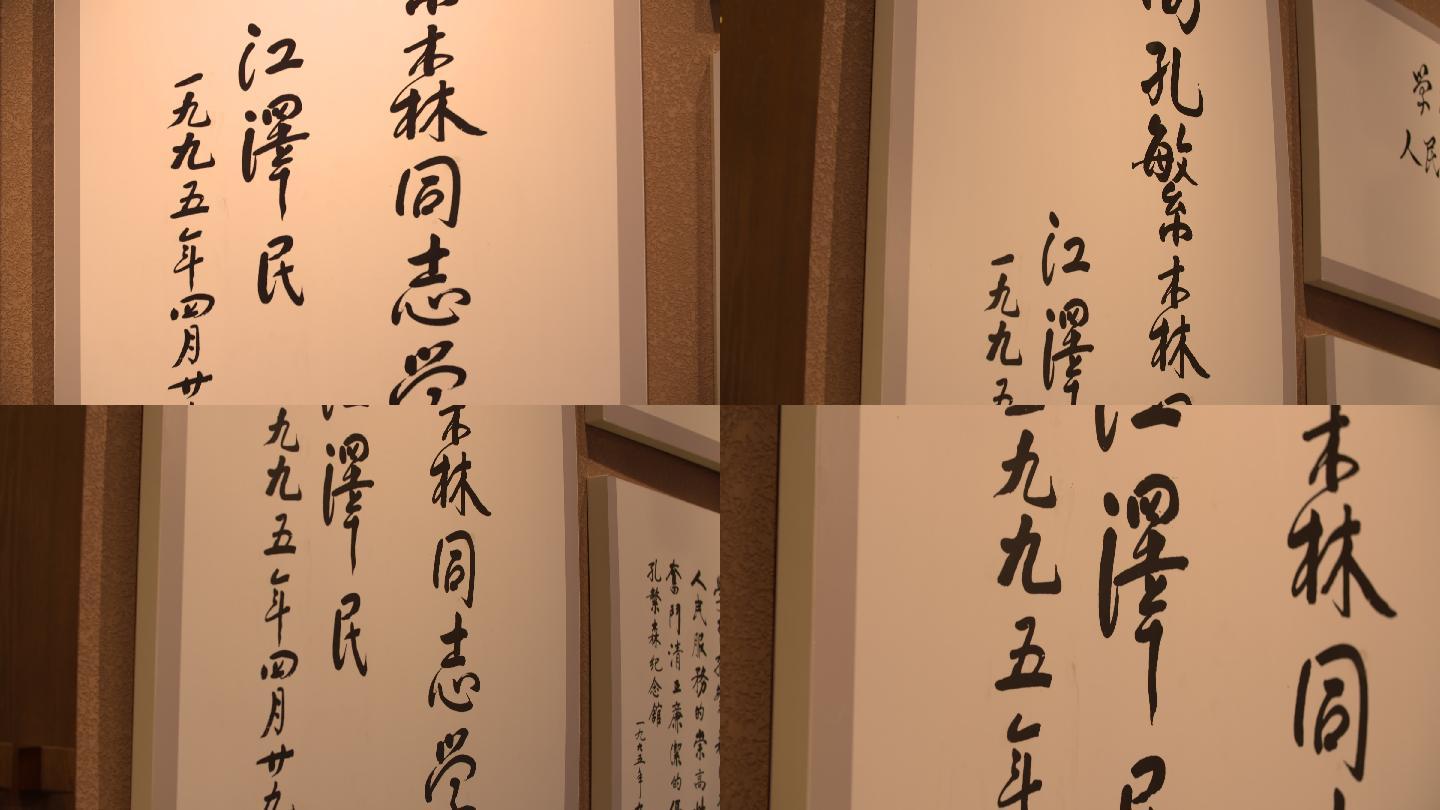 森林同志学
江泽民
一九九五年四月廿
同孔繁森林
江泽
一九九五
人民
森林同志学
江泽民
九九五年四月廿九
人民服務的崇高
奮鬥清正廉潔的
孔繁森纪念館
一九九五年
木林同
江泽民
一九九五年